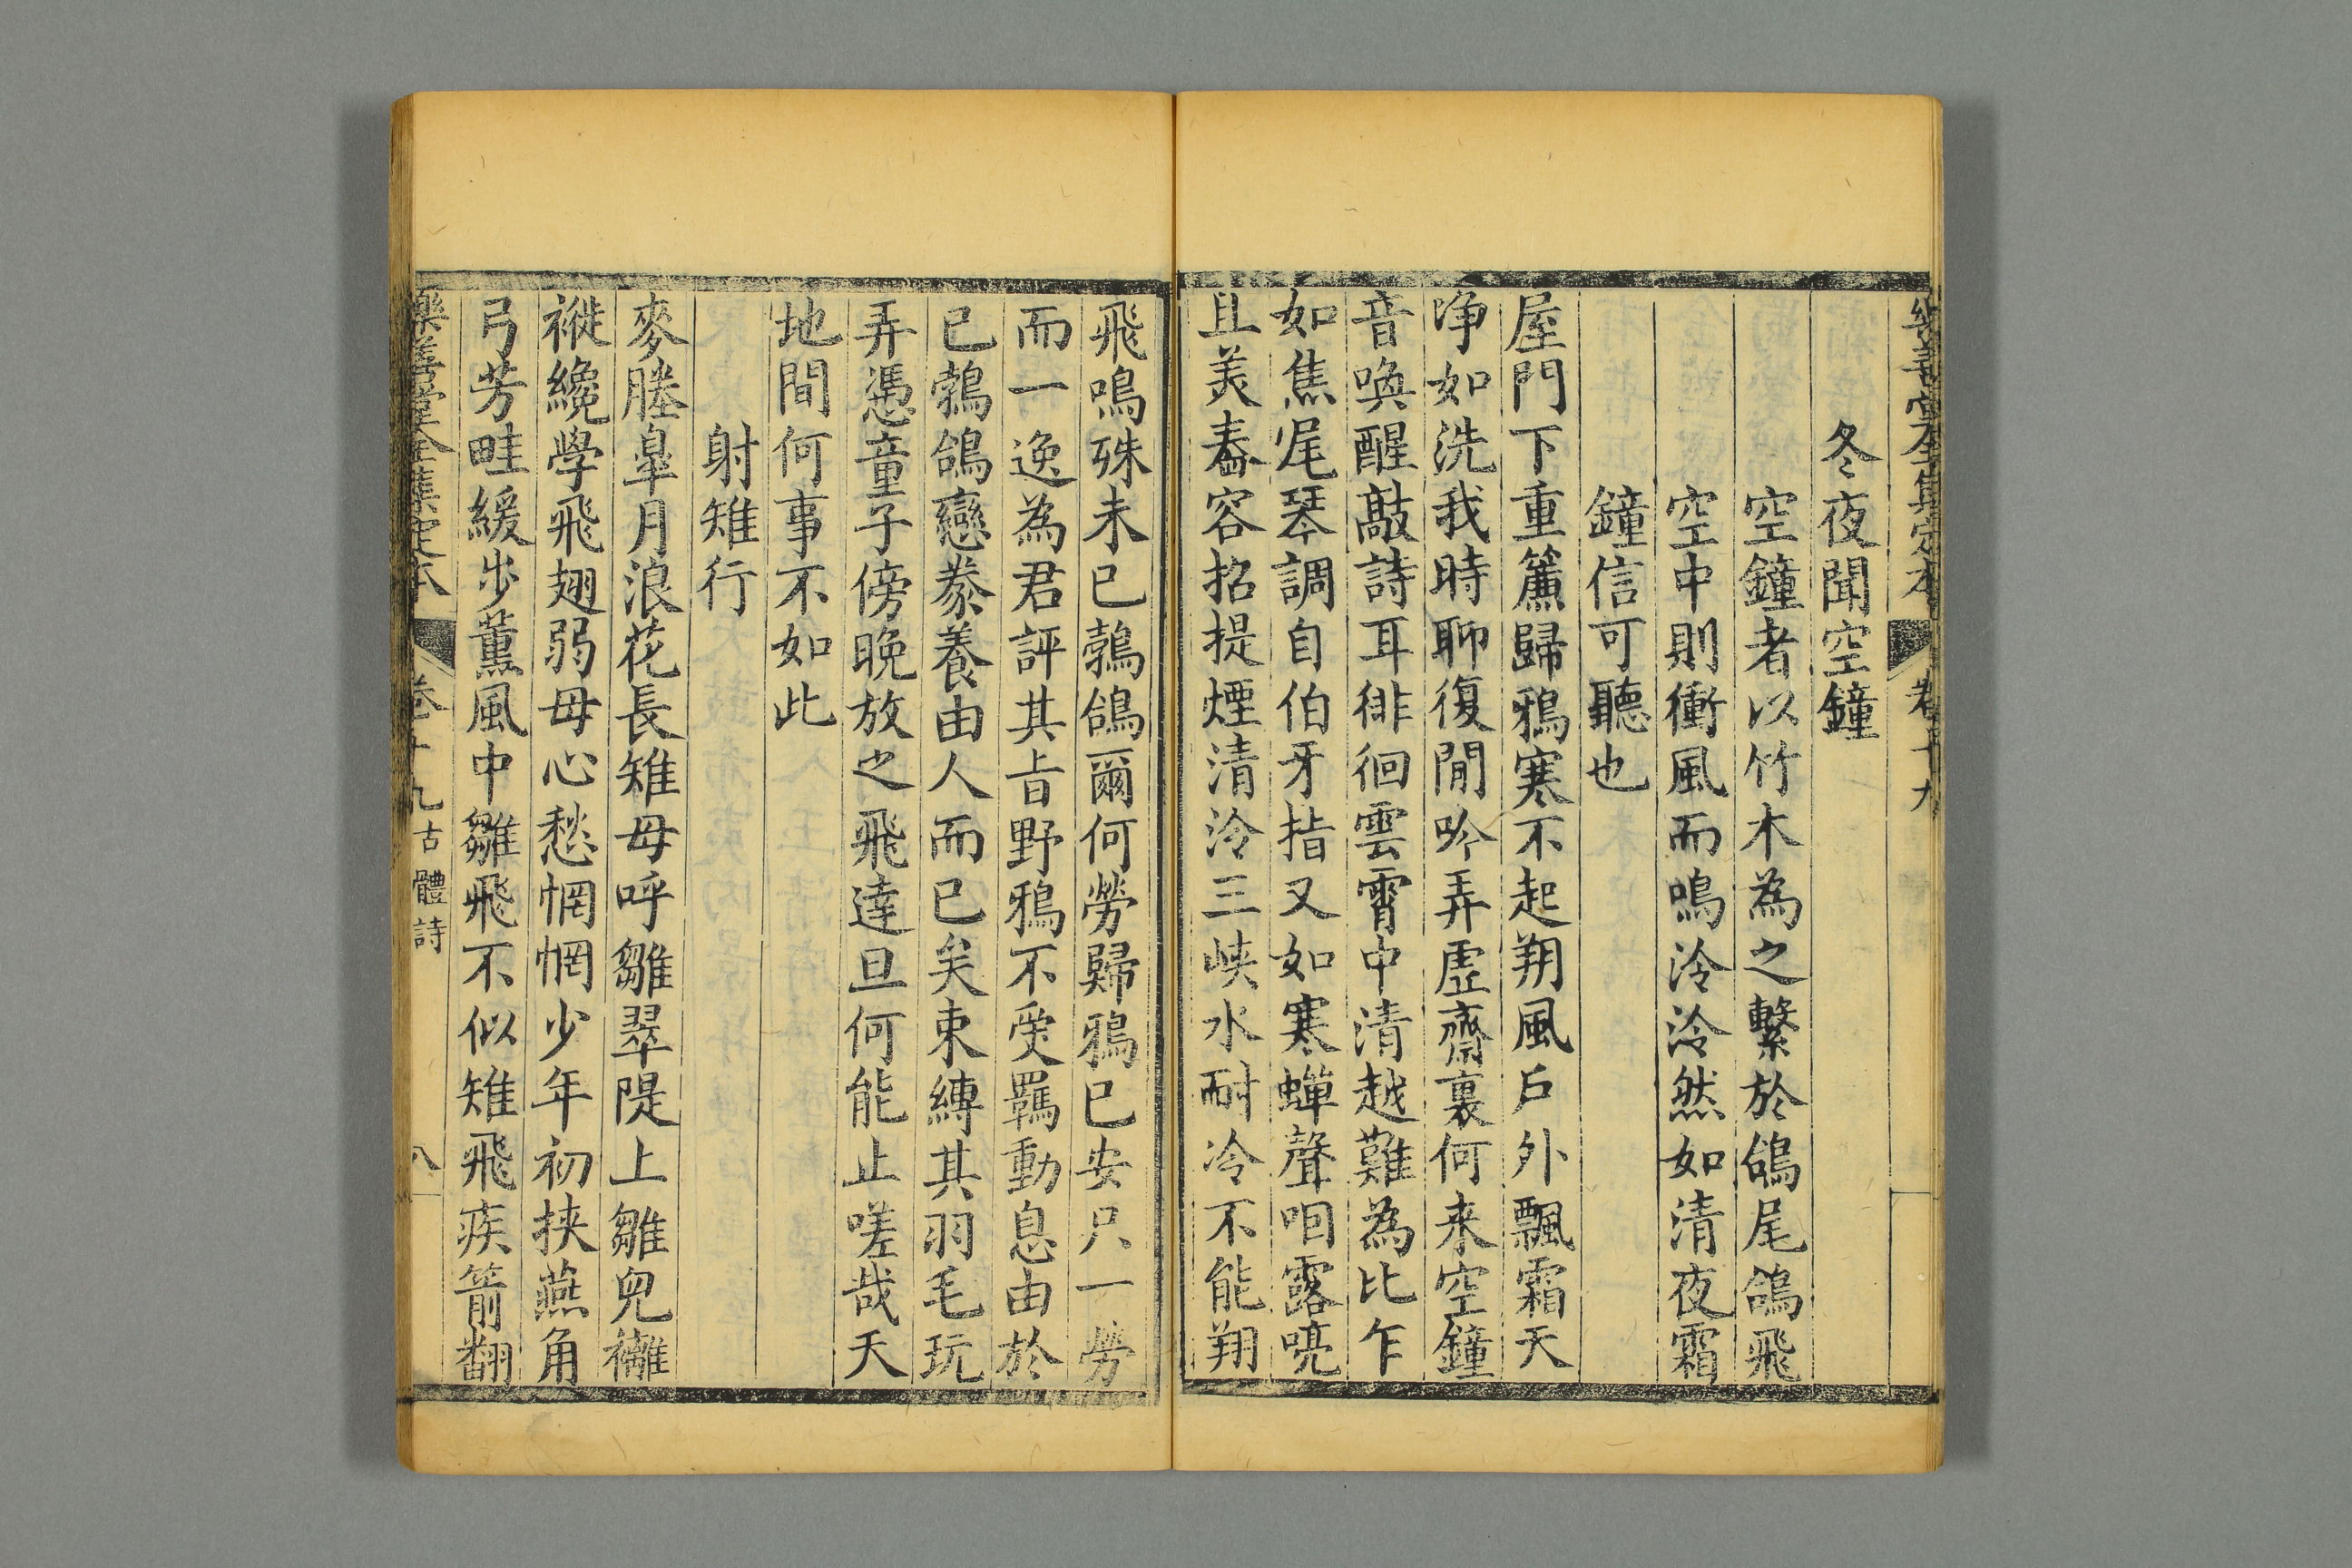 樂善堂全集定本 卷十九
冬夜聞空鐘
空鐘者以竹木為之繫於鴿尾鴿飛
空中則衝風而鳴泠泠然如清夜霜
鐘信可聽也
屋門下重簾歸鴉寒不起朔風戶外飄霜天
凈如洗我時聊復閒吟弄虛齋裏何來空鐘
音喚醒敲詩耳徘徊雲霄中清越難為比乍
如焦尾琴調自伯牙指又如寒蟬聲咽露喨
且美春容招提煙清泠三峽水耐冷不能翔
飛鳴殊未已鵓鴿爾何勞歸鴉已安只一勞
而一逸為君評其旨野鴉不受羈動息由於
已鵓鴿戀豢養由人而已矣束縛其羽毛玩
弄憑童子傍晚放之飛達旦何能止嗟哉天
地間何事不如此
射雉行
麥塍皐月浪花長雉母呼雛翠隄上雛兒襳
褷纔學飛翅弱母心愁惘惘少年初挾燕角
弓芳畦緩步薰風中雛飛不似雉飛疾箭翻
樂善堂全集定本 卷十九 古體詩 八